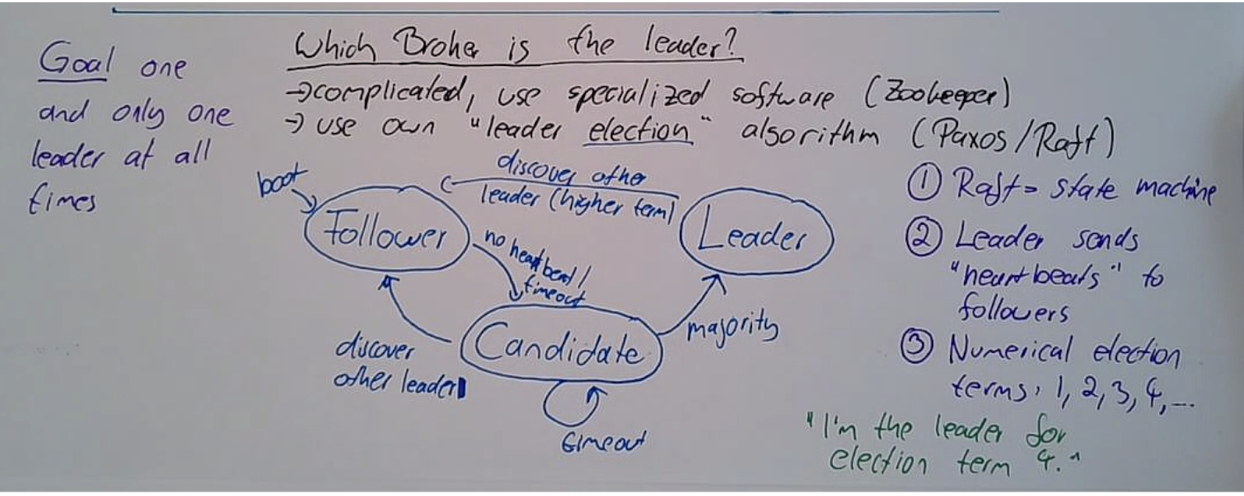 Goal one
and only one
leader at all
times
Which Broker is the leader?
→complicated, use specialized software (Zookeeper)
→ use own "leader election" algorithm (Paxos/Raft)
boot
Follower
discover other
leader (higher term)
Leader
no heartbeat/
timeout
Candidate
majority
discover
other leader
timeout
① Raft = state machine
② Leader sends
"heartbeats" to
followers
③ Numerical election
terms: 1, 2, 3, 4, ...
"I'm the leader for
election term 4."